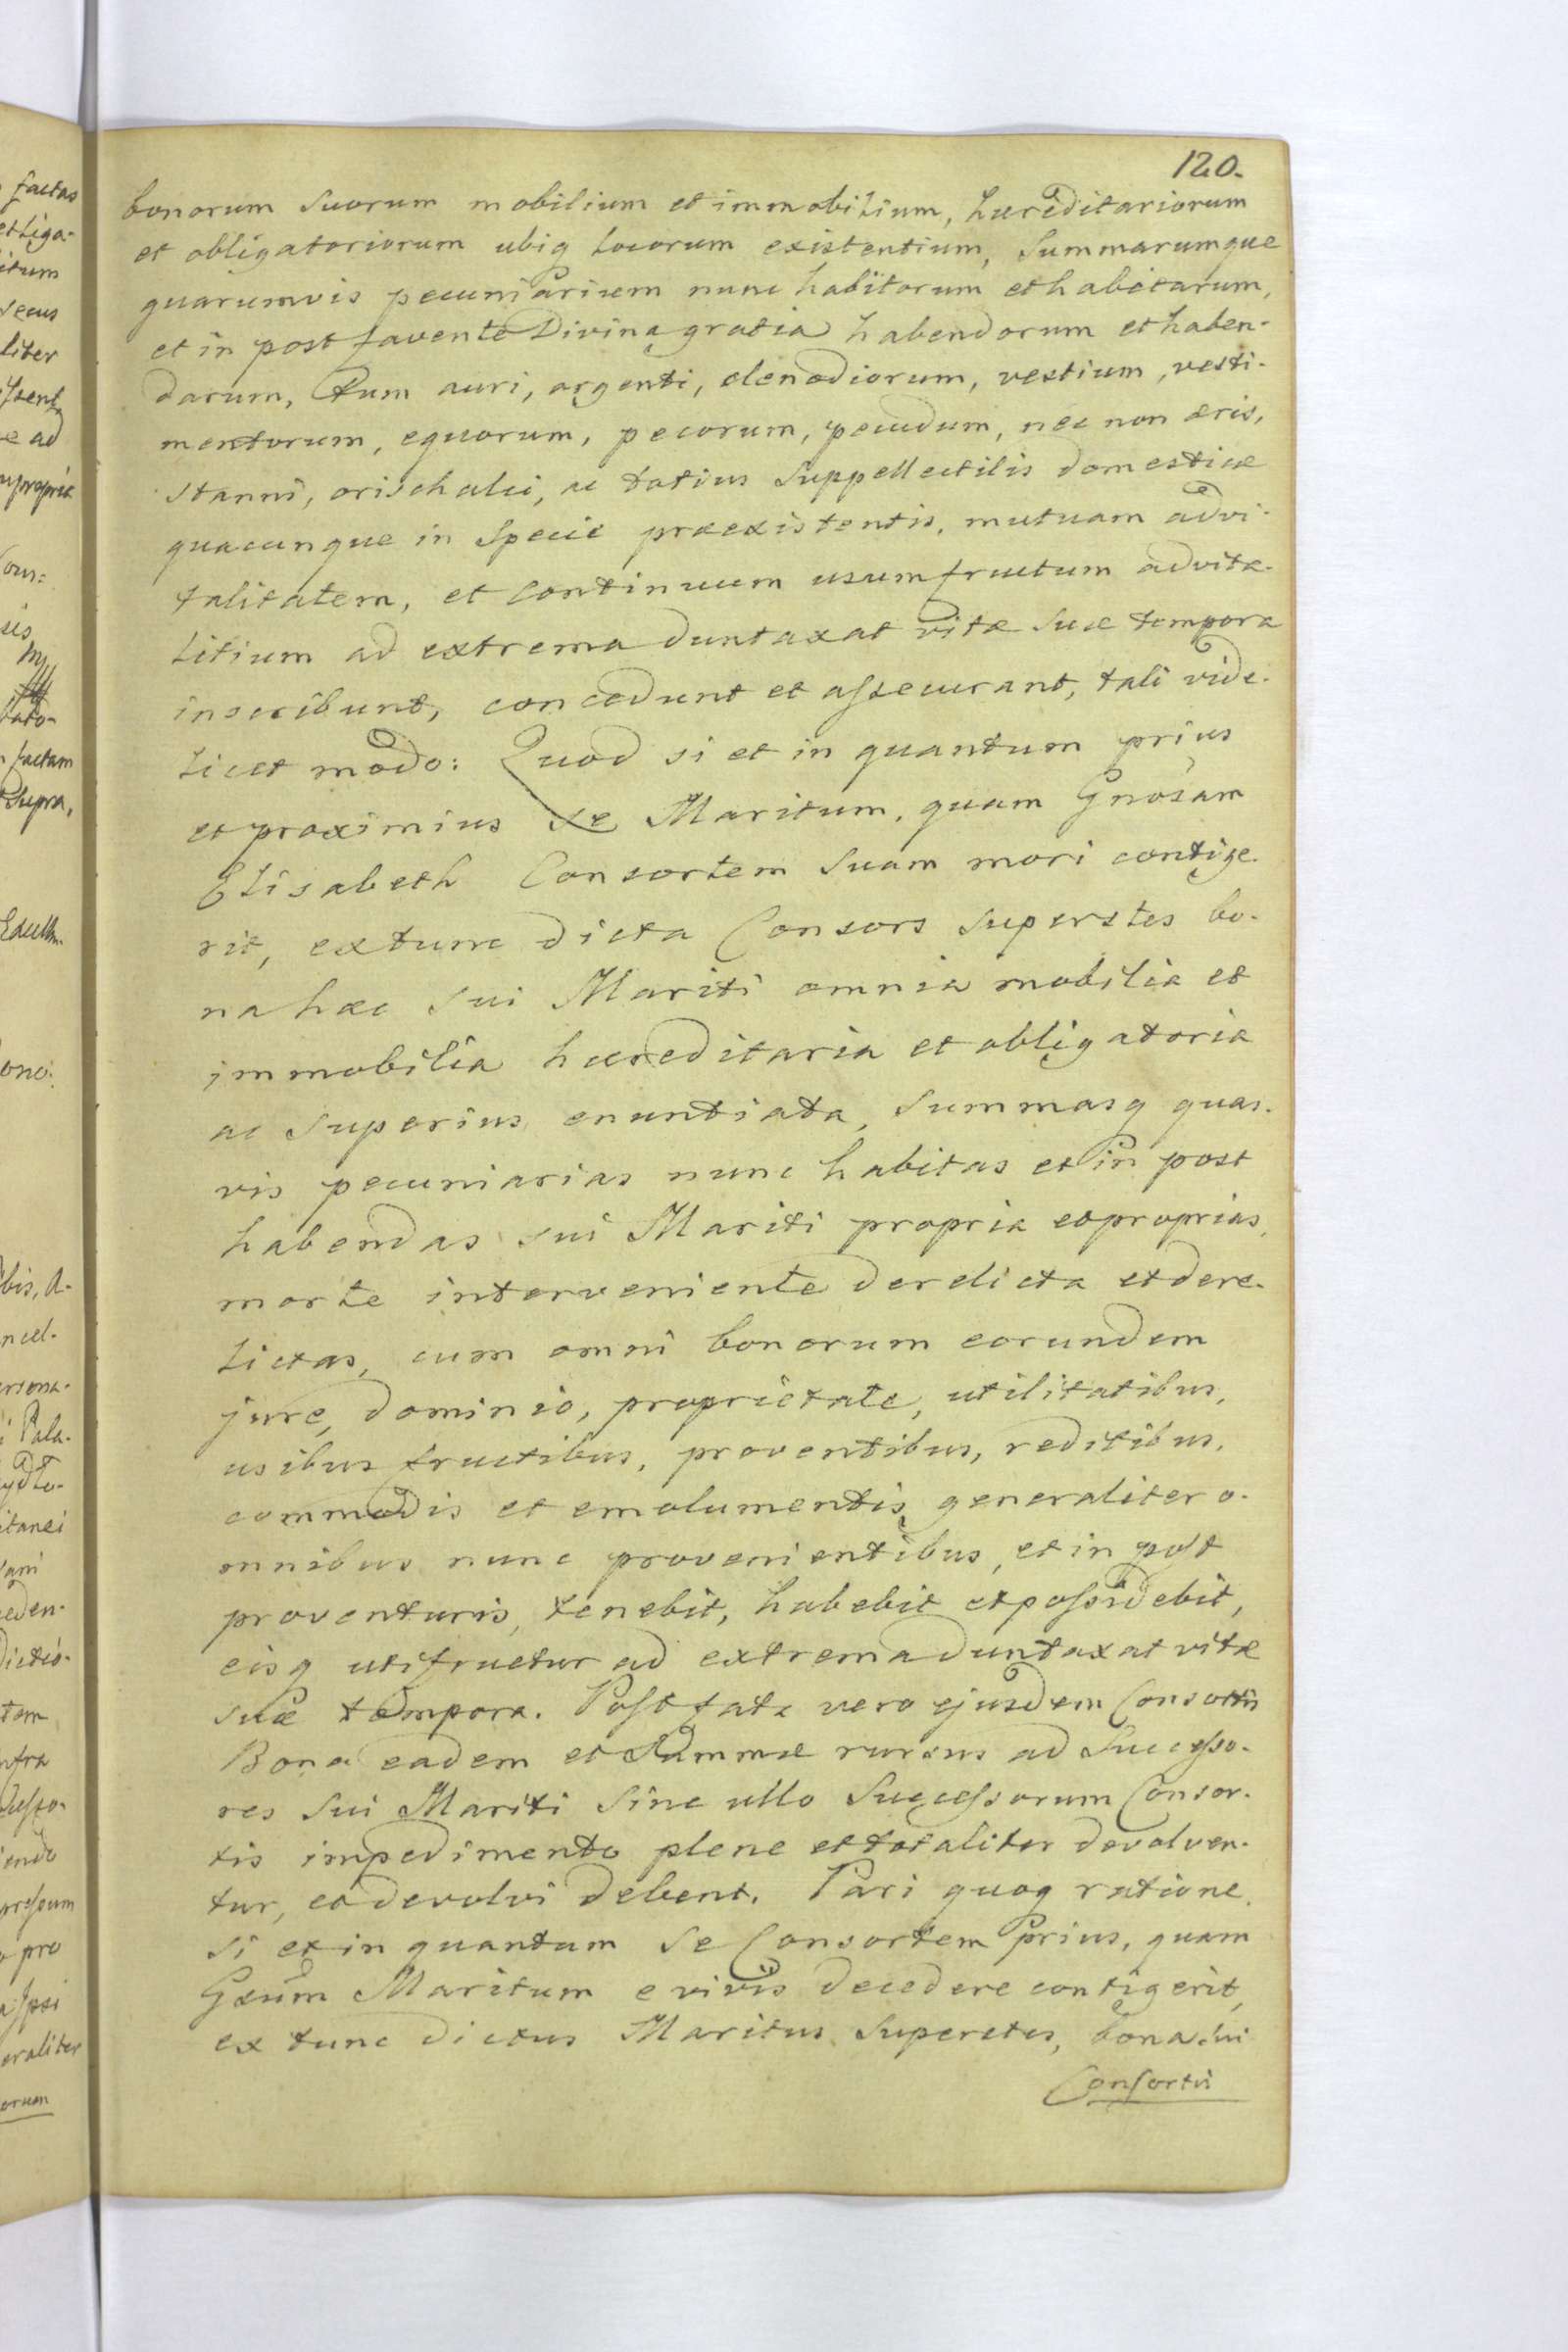 120.
bonorum suorum mobilium et immobilium, hæreditariorum
et obligatoriorum ubiq locorum existentium, Summarumque
quarumvis pecuniarium nunc habitorum et habitarum,
et in post favente Divina gratia habendorum et haben-
darum, tum auri, argenti, clenodiorum, vestium, vesti-
mentorum, equorum, pecorum, pecudum, nec non æris,
stanni, orichalci, ac totius Suppellectilis domesticæ
quacunque in Specie præexistentis, mutuam advi-
talitatem, et continuum usumfructum advita-
litium ad extrema duntaxat vitæ suæ tempora
inscribunt, concedunt et assecurant, tali vide-
licet modo: Quod si et in quantum prius
et proximius se Maritum, quam Gnosam
Elisabeth Consortem suam mori contige-
rit, extunc dicta Consors superstes bo-
na hæc sui Mariti omnia mobilia et
immobilia hæreditaria et obligatoria
ac superius enuntiata, summasq quas-
vis pecuniarias nunc habitas et in post
habendas sui Mariti propria et proprias,
morte interveniente derelicta et dere-
lictas, cum omni bonorum eorundem
jure, dominio, proprietate, utilitatibus,
usibus fructibus, proventibus, reditibus,
commodis et emolumentis generaliter o-
mnibus nunc provenientibus, et in post
proventuris, tenebit, habebit et possidebit,
eisq utifruetur ad extrema duntaxat vitæ
suæ tempora. Post fata vero ejusdem Consortis
Bona eadem et Summæ rursus ad Successo-
res sui Mariti sine ullo Successorum Consor-
tis impedimento plene et totaliter devolven-
tur, et devolvi debent. Pari quoq ratione
si et in quantum se Consortem prius, quam
Gsum Maritum e vivis decedere contigerit,
ex tunc dictus Maritus Superstes, bona sui
Consortis
factas
et liga-
secus
liter
e ad
factam
supra,
Pala-
itanei
eden-
dictio-
infra
pro
eraliter
orum